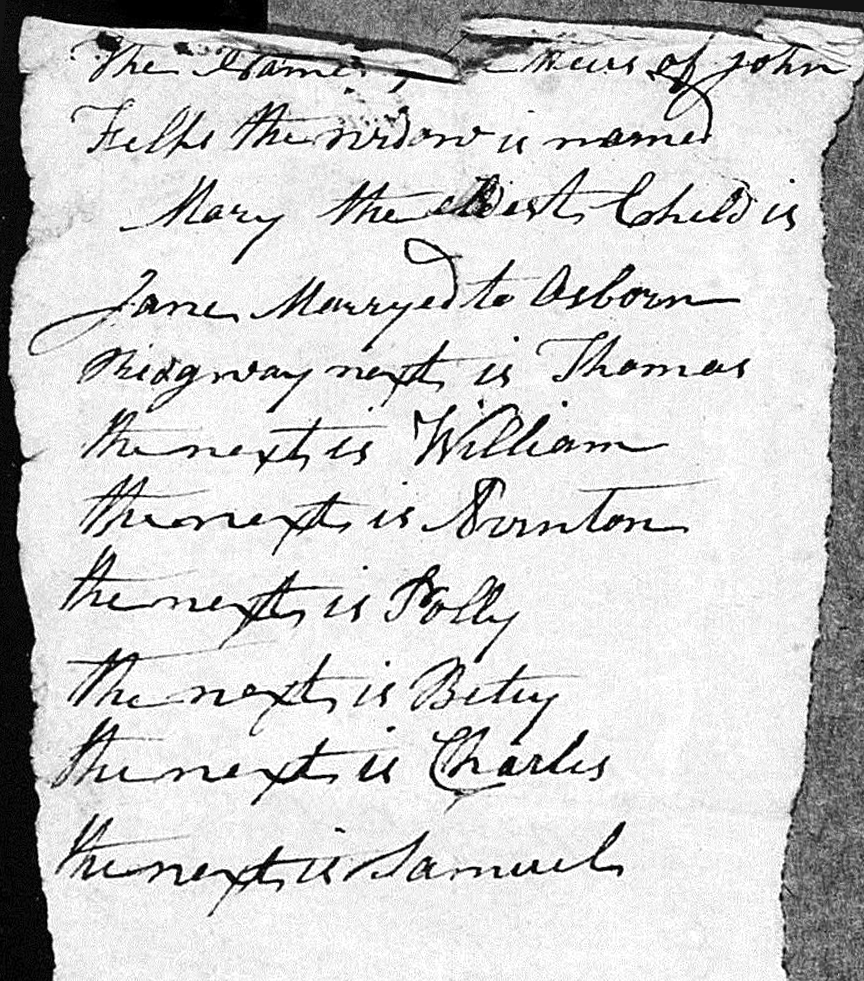 The Name heirs of John
the widow is named
Mary the eldest Child is
Jane Marryed to Osborn
Ridgway next is Thomas
the next is William
the next is
the next is Polly
the next is Betsy
the next is Charles
the next is Samuel